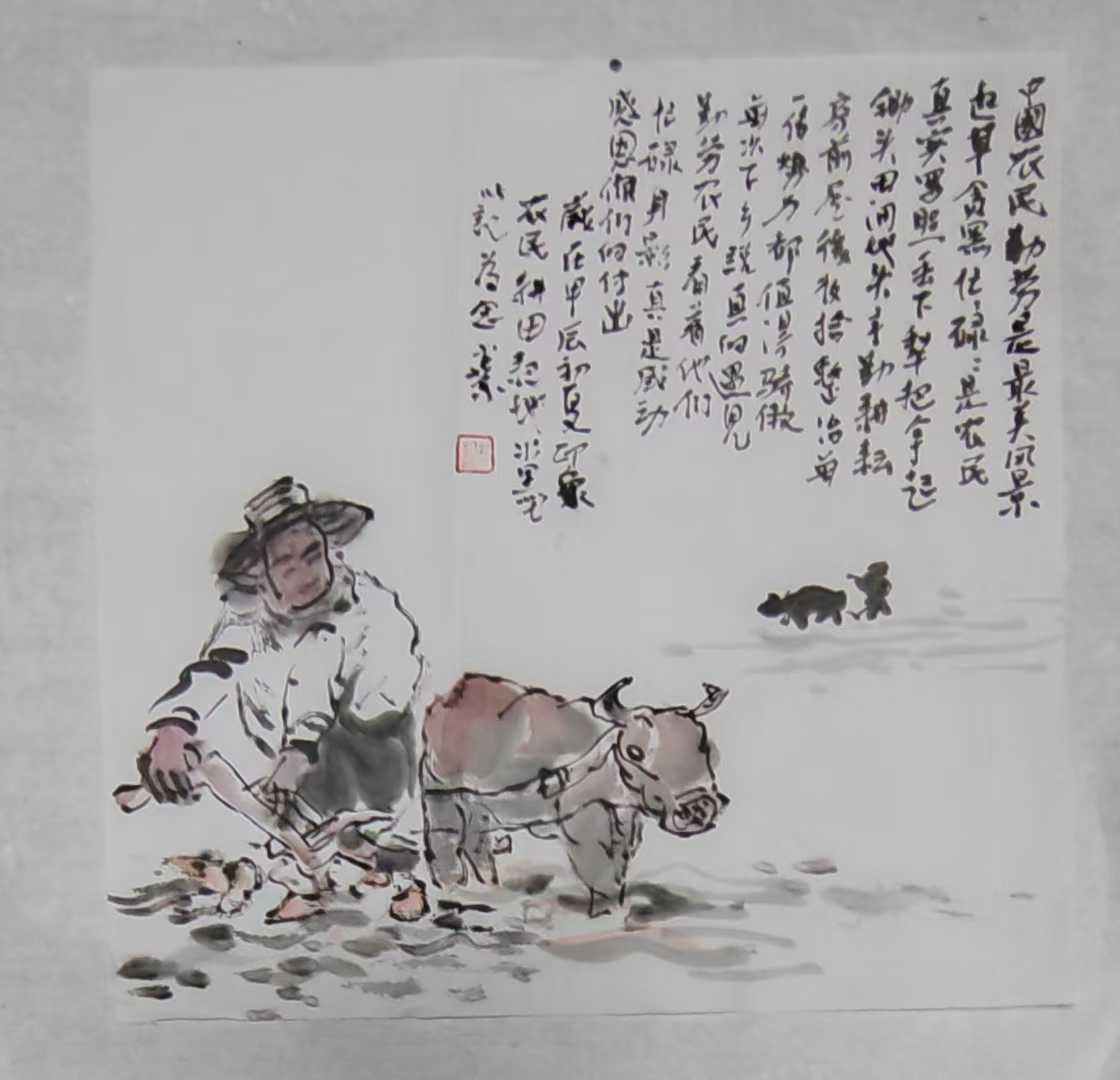 中國农民勤劳是最美风景
起早贪黑忙碌是农民
真实写照下犁把拿起
锄头田间地头辛勤耕耘
房前屋後收拾整治每
一份努力都值得骄傲
每次下乡真的遇见
勤劳农民看着他们
忙碌身影真是感动
感恩他们的付出
岁在甲辰初夏印象
农民耕田地
以記为念